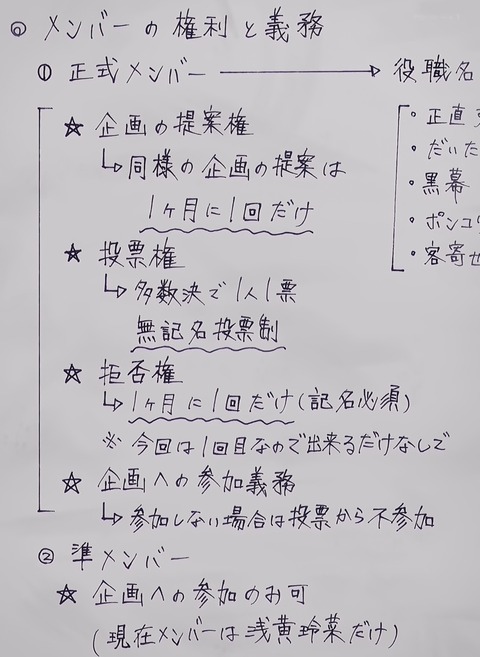 ◎ メンバーの権利と義務
① 正式メンバー → 役職名
☆ 企画の提案権
↳ 同様の企画の提案は
1ヶ月に1回だけ
☆ 投票権
↳ 多数決で1人1票
無記名投票制
☆ 拒否権
↳ 1ヶ月に1回だけ(記名必須)
※ 今回は1回目なので出来るだけなしで
☆ 企画への参加義務
↳ 参加しない場合は投票から不参加
・正直
・だいた
・黒幕
・ポンコ
・客寄せ
② 準メンバー
☆ 企画への参加のみ可
(現在メンバーは浅黄玲菜だけ)